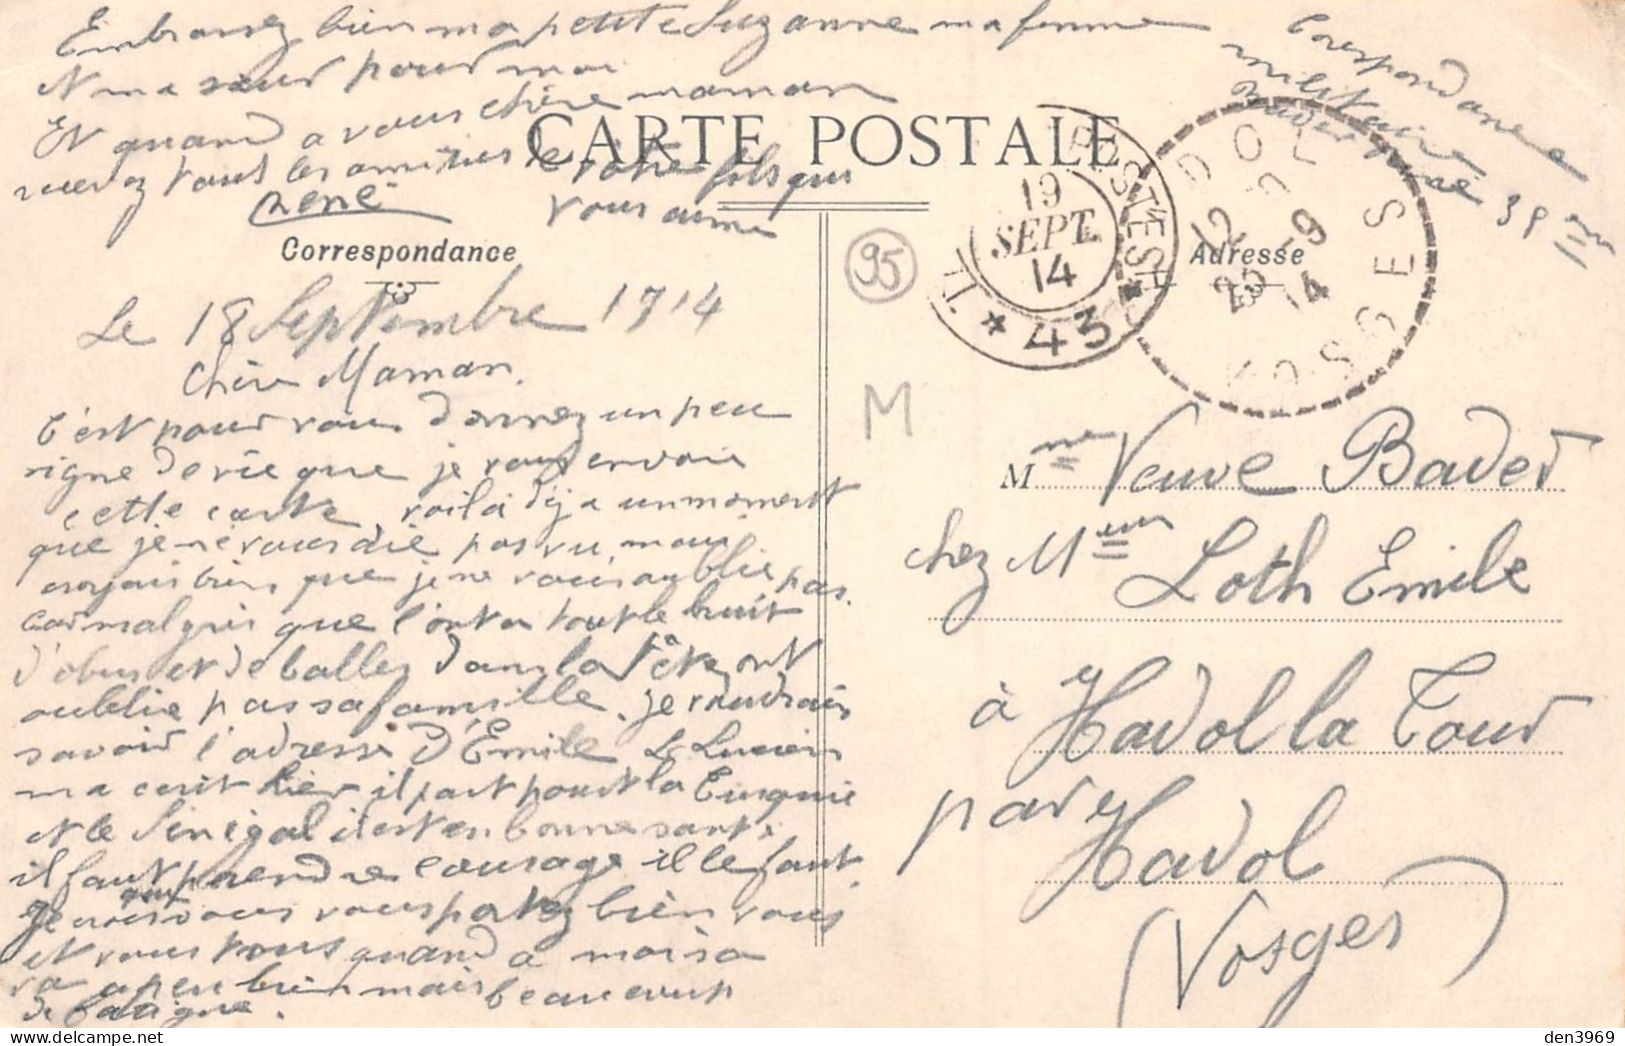 Embrassez bien ma petite Suzanne ma femme
et ma sœur pour moi
Et quand a vous chère maman
recevez tous les amitiés de votre fils qui
vous aime
René
Corespondance
militaire
Bader René 38
CARTE POSTALE
Correspondance
Adresse
19
SEPT.
14
43
95
M
DOL
22
23 -9
14
VOSGES
Le 18 Septembre 1914
Chère Maman.
C'est pour vous donnez un peu
signe de vie que je vous envoie
cette carte, voilà déja un moment
que je ne vous aie pas vu, mais
croyais bien que je ne vous oublie pas.
car malgrés que l'ont a tout le bruit
d'obus et de balles dans la tête ont
oublie pas sa famille. je voudrais
savoir l'adresse d'Emile Le Lucien
ma ecrit hier il part pour la Turquie
et le Sénégal il est en bonne santé
il faut prendre courage il le faut.
Je crois que vous vous portez bien vous
et vous tous quand a moi sa
va a peu bien mais beaucoup
de fatigue.
Mme Veuve Bader
chez Mr Loth Emile
à Hadol la Tour
par Hadol
(Vosges)
den3969